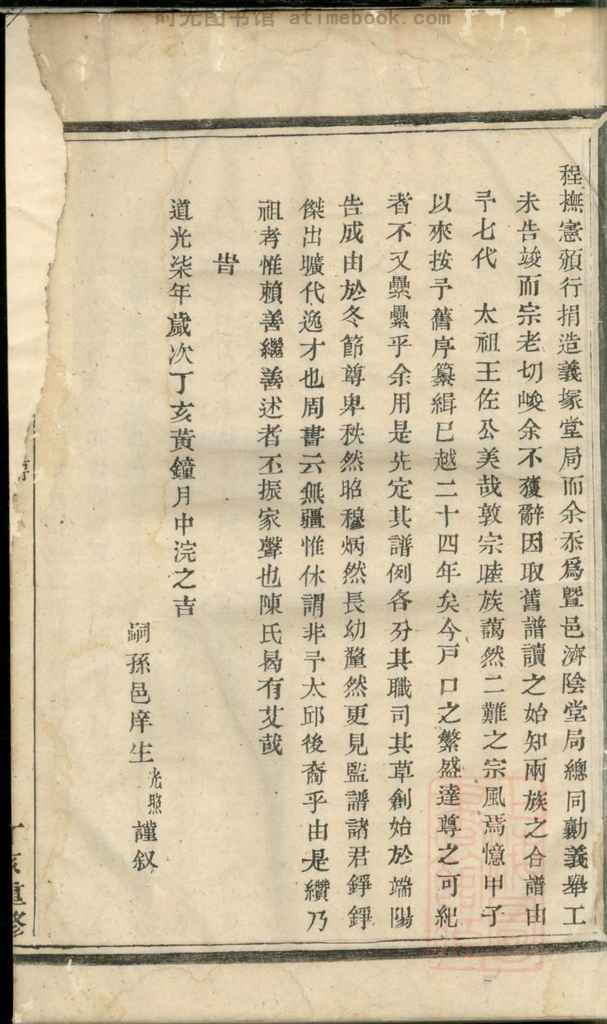 时光图书馆 atimebook.com
程撫憲頒行捐造義塚堂局而余忝為暨邑濟陰堂局總同勷義舉工
未告竣而宗老切峻余不獲辭因取舊譜讀之始知兩族之合譜由
予七代　太祖王佐公美哉敦宗睦族藹然二難之宗風焉憶甲子
以來按予舊序纂緝已越二十四年矣今戶口之繁盛達尊之可紀
者不又纍纍乎余用是先定其譜例各分其職司其草創始於端陽
告成由於冬節尊卑秩然昭穆炳然長幼釐然更見監譜諸君錚錚
傑出曠代逸才也周書云無疆惟休謂非予太邱後裔乎由是纘乃
祖考惟賴善繼善述者丕振家聲也陳氏曷有艾哉
旹
道光柒年歲次丁亥黃鐘月中浣之吉
嗣孫邑庠生光照謹叙
重修